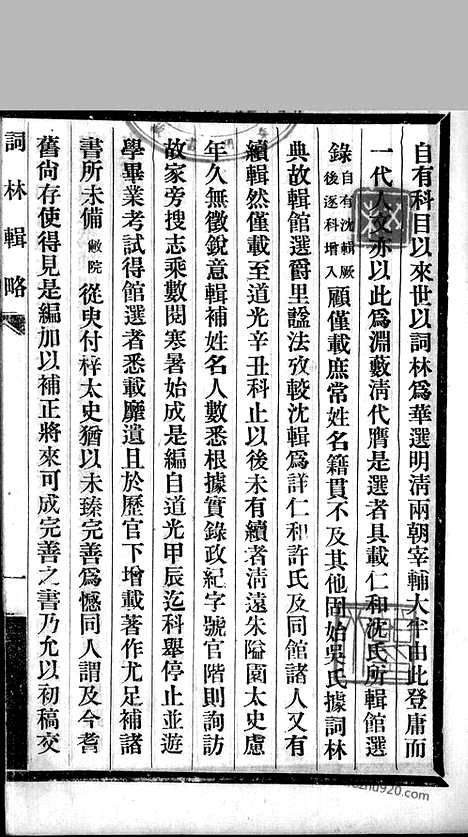 自有科目以來世以詞林爲華選明淸兩朝宰輔大半由此登庸而
一代人文亦以此爲淵藪淸代膺是選者具載仁和沈氏所輯館選
錄自有沈輯厥後逐科增入顧僅載庶常姓名籍貫不及其他固始吳氏據詞林
典故輯館選爵里諡法攷較沈輯爲詳仁和許氏及同館諸人又有
續輯然僅載至道光辛丑科止以後未有續者淸遠朱隘園太史慮
年久無徵銳意輯補姓名人數悉根據實錄政紀字號官階則詢訪
故家旁搜志乘數閱寒暑始成是編自道光甲辰迄科舉停止並遊
學畢業考試得館選者悉載靡遺且於歷官下增載著作尤足補諸
書所未備敝院從臾付梓太史猶以未臻完善爲憾同人謂及今耆
舊尙存使得見是編加以補正將來可成完善之書乃允以初稿交
詞林輯略
一
zhu920.com